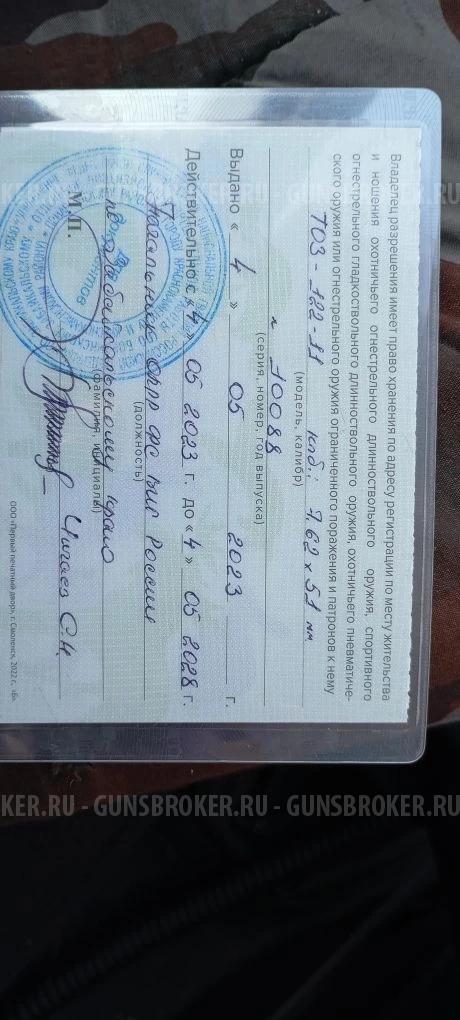 Владелец разрешения имеет право хранения по адресу регистрации по месту жительства
и ношения охотничьего огнестрельного длинноствольного оружия, спортивного
огнестрельного гладкоствольного длинноствольного оружия, охотничьего пневматиче-
ского оружия или огнестрельного оружия ограниченного поражения и патронов к нему
ТОЗ - 122 - 11 кл.: 7,62 x 51 мм
(модель, калибр)
10088
(серия, номер, год выпуска)
Выдано « 4 » 05 2023 г.
Действительно с « 4 » 05 2023 г. до « 4 » 05 2028 г.
Начальник ОЛРР ФС ВНГ России
(должность)
по Забайкальскому краю
(фамилия, инициалы)
М.П.
ООО «Первый печатный двор», г. Смоленск, 2022 г., «Б».
KER.RU - GUNSBROKER.RU - GUNSBROKER.RU
KER.RU - GUNSBROKER.RU - GUNSBROKER.RU